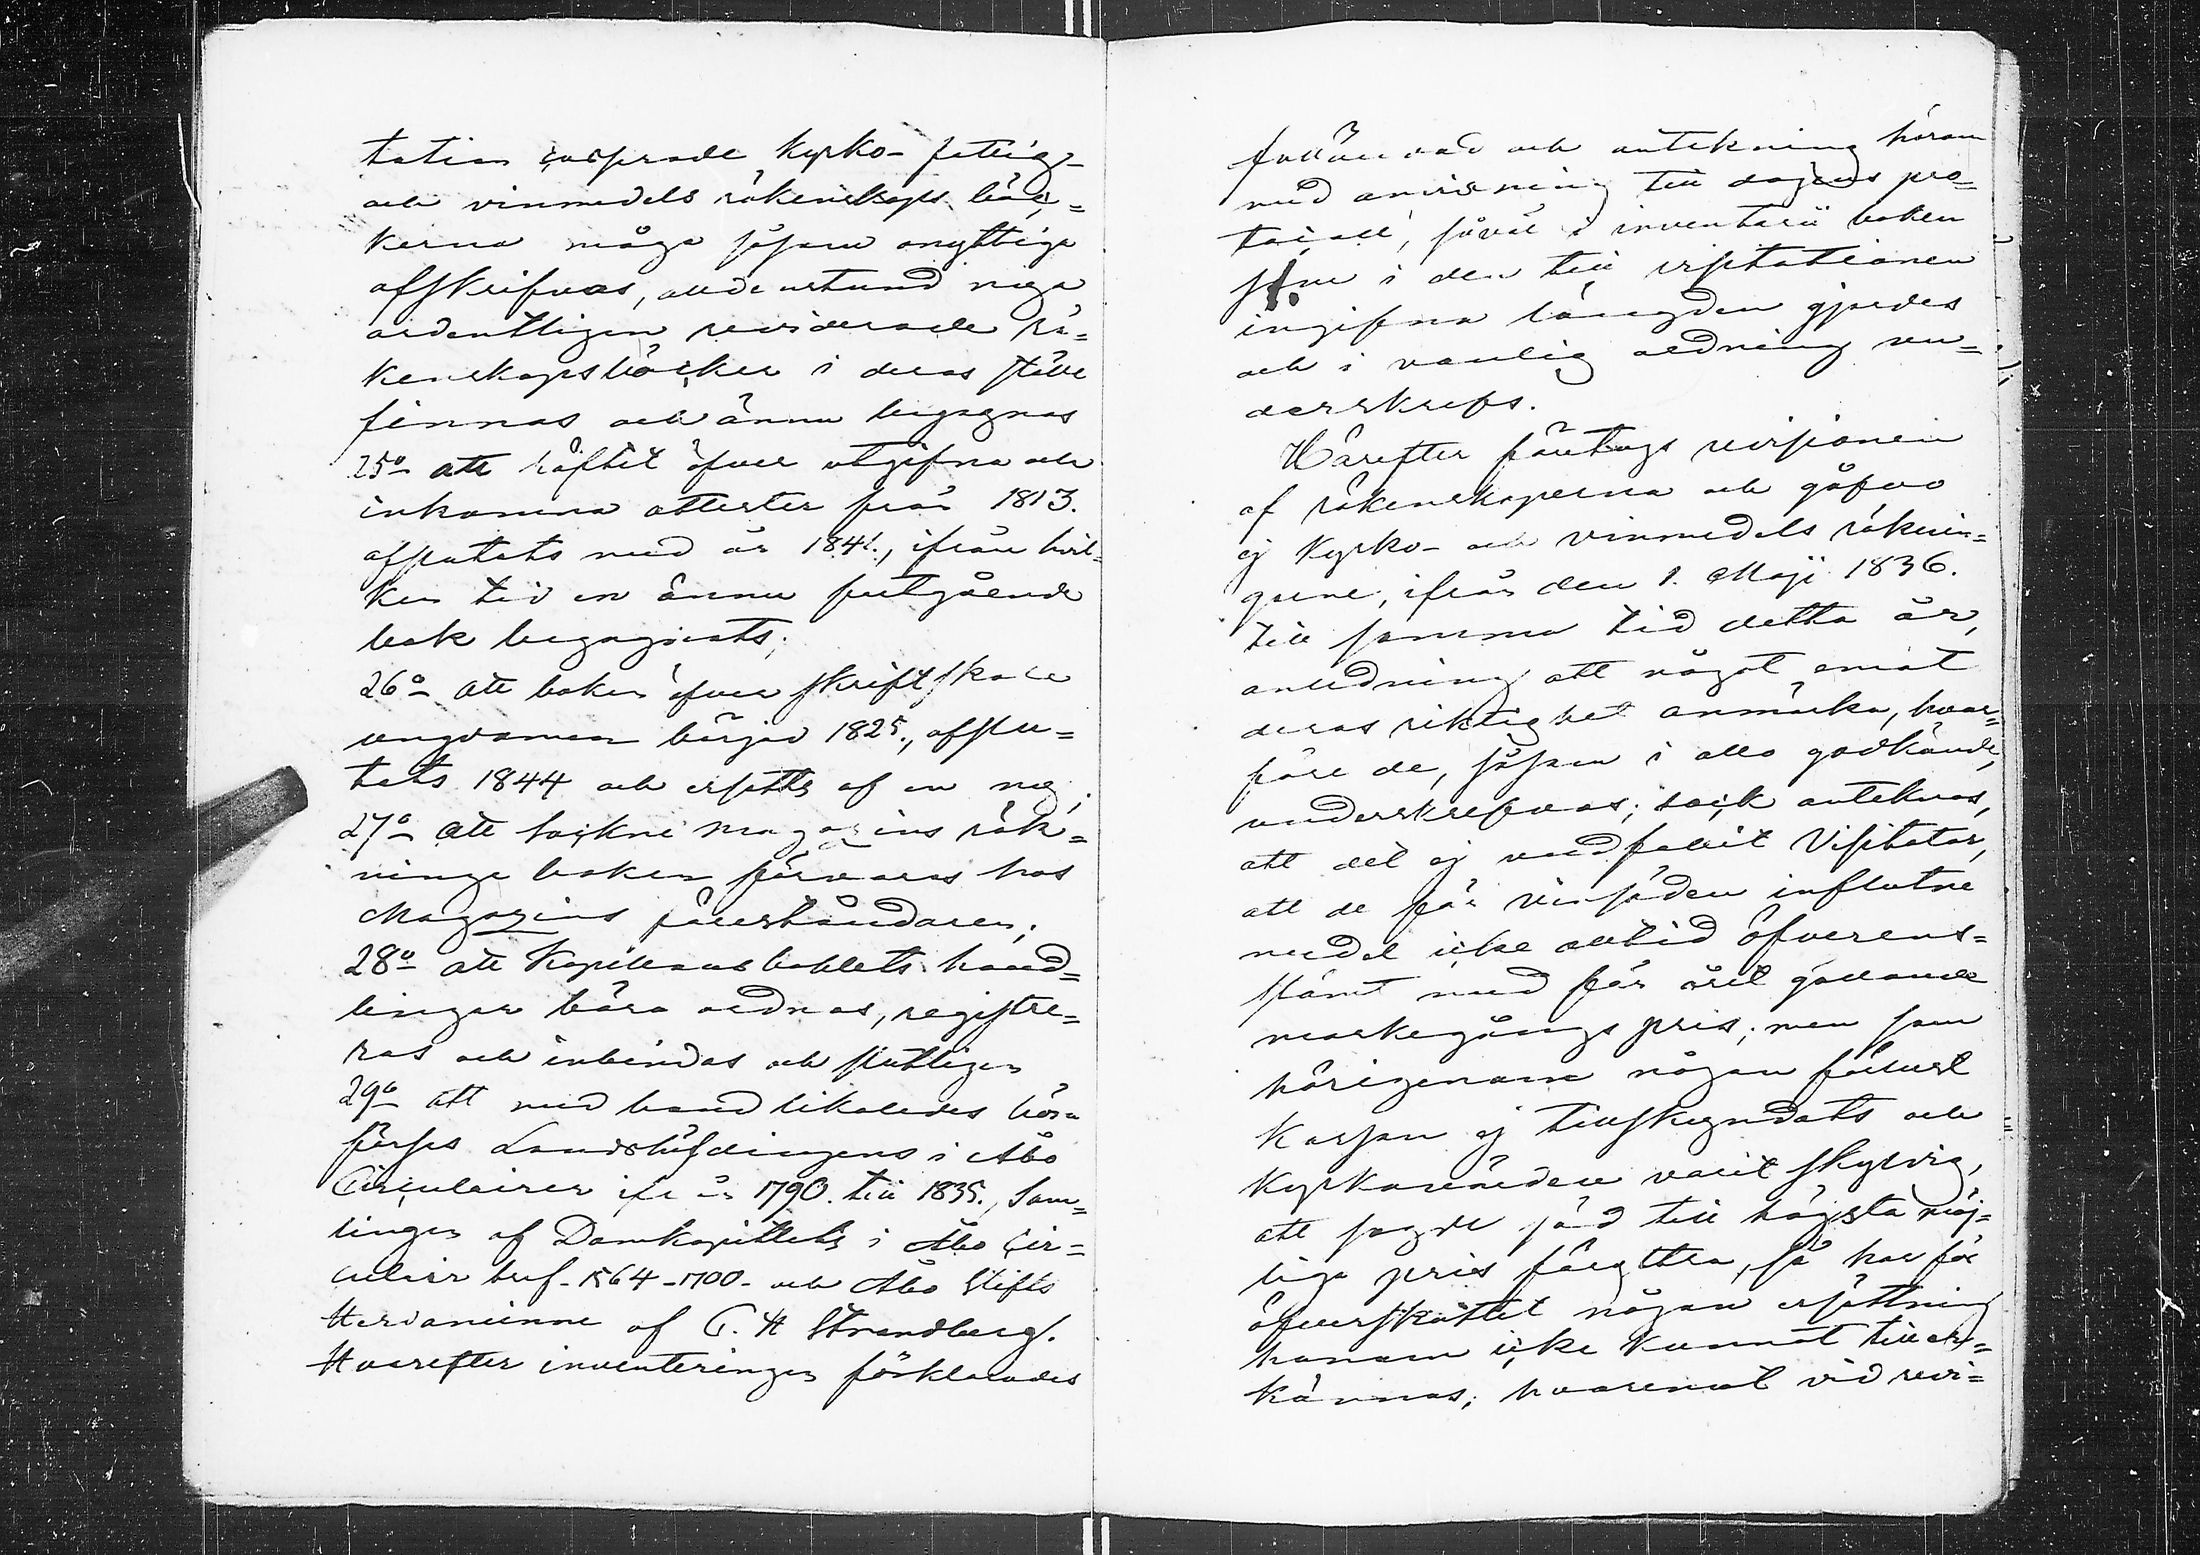 tation kyrko- fattig-
och vinmedels räkenskaps böc=
kerna måga såsom onyttiga
afskrifvas, alldenstund nya
ordentligen reviderade rä=
kenskapsböcker i deras ställe
finnas och ännu begagnas
25o att häftet öfver utgifna och
inkomna attester från 1813.
afslutats med år 1841., ifrån hvil=
ken tid en ännu fortgående
bok begagnats;
26o att boken öfver skriftskole
ungdomen börjad 1825., afslu=
tats 1844 och ersatts af en ny;
27o att sockne magazins räk=
ninge boken förvaras hos
Magazins föreståndaren;
28o att Kapellansbohlets hand=
lingar böra ordnas, registre=
ras och inbindas och slutligen
29o att med band likaledes böra
förses Landshöfdingens i Åbo
Circulairer ifrån 1790. till 1835., Sam=
lingen af Domkapitlets i Åbo Cir=
culair bref 1564-1700- och Åbo Stifts
Herdaminne af C. H Strandberg.
Hvarefter inventeringen förklarades
fulländad och antekning härom
med anvisning till dagens pro=
tocoll, såväl i inventarii boken
som i den till visitationen
ingifna längden gjordes
och i vanlig ordning un=
derskrefs.
Härefter företogs revisionen
af räkenskaperna och gåfvo
ej Kyrko- och vinmedels räknin=
garne, ifrån den 1. Maji 1836.
till samma tid detta år,
anledning att något emot
deras riktighet anmärka, hvar=
före de, såsom i allo godkände,
underskrefvos; dock anteknas,
att det ej undfallit Visitator,
att de för vinsäden influtne
medel icke alltid öfverens=
stämt med för året gällande
markegångs pris; men som
härigenom någon förlust
Kassan ej tillskyndats och
Kyrkoherden varit skyldig,
att sagde säd till högsta möj=
liga pris föryttra, så har för
öfverskottet någon ersättning
honom icke kunnat tiller=
kännas; hvaremot vid revi=